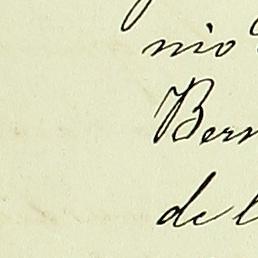 nio
Bern
de l